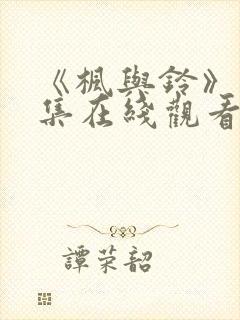 《楓與鈴》
集在綫觀看
譚荣韶